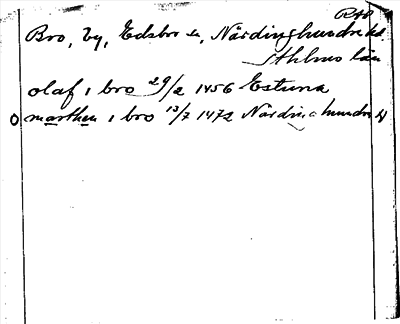 RAP
Bro, by, Edsbro sn, Närdinghundra hd
Sthlms län
olaf i bro 29/2 1456 Estuna
marthen i bro 13/7 1472 Närdingahundra